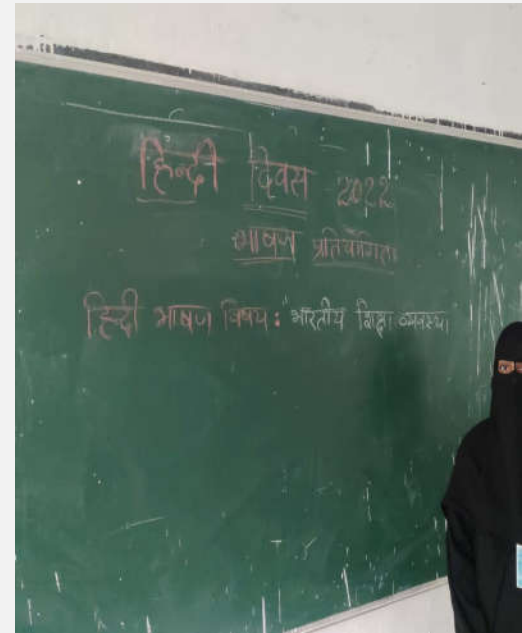 हिन्दी दिवस 2022
भाषण प्रतियोगिता
हिन्दी भाषण विषय: भारतीय शिक्षा व्यवस्था